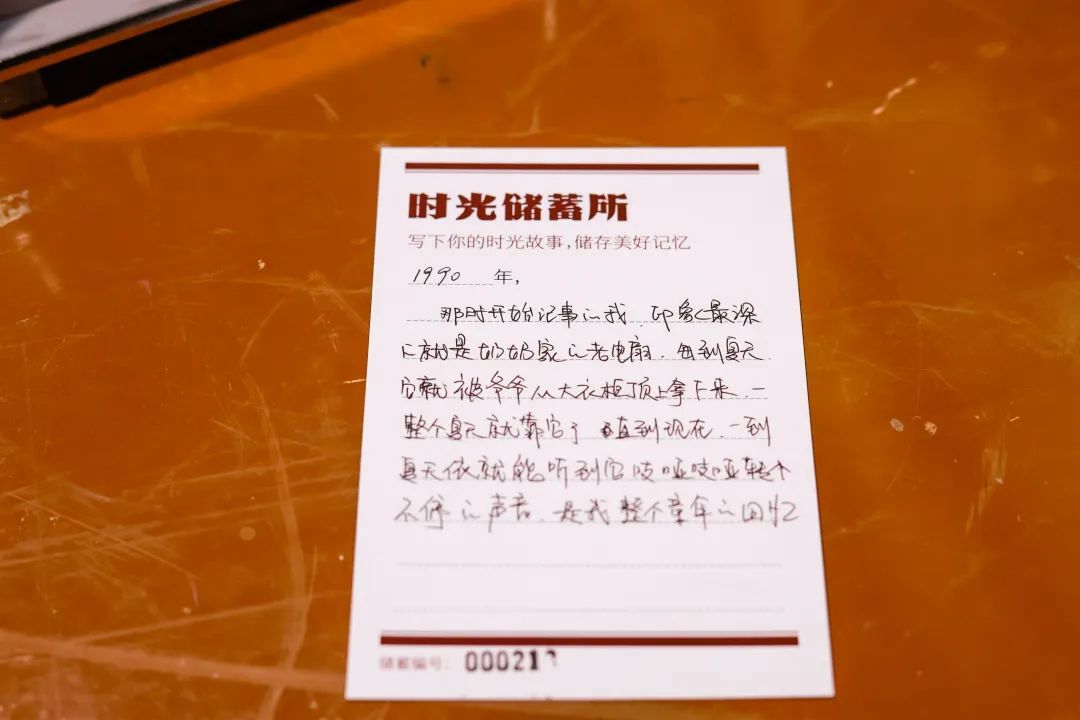 时光储蓄所
写下你的时光故事,储存美好记忆
1990 年,
那时开始记事的我,印象最深
的就是奶奶家的老电扇.每到夏天.
它就被爷爷从大衣柜顶上拿下来.一
整个夏天就靠它了 直到现在.一到
夏天依就能听到它吱哑吱哑转个
不停的声音.是我整个童年的回忆
储蓄编号: 000213